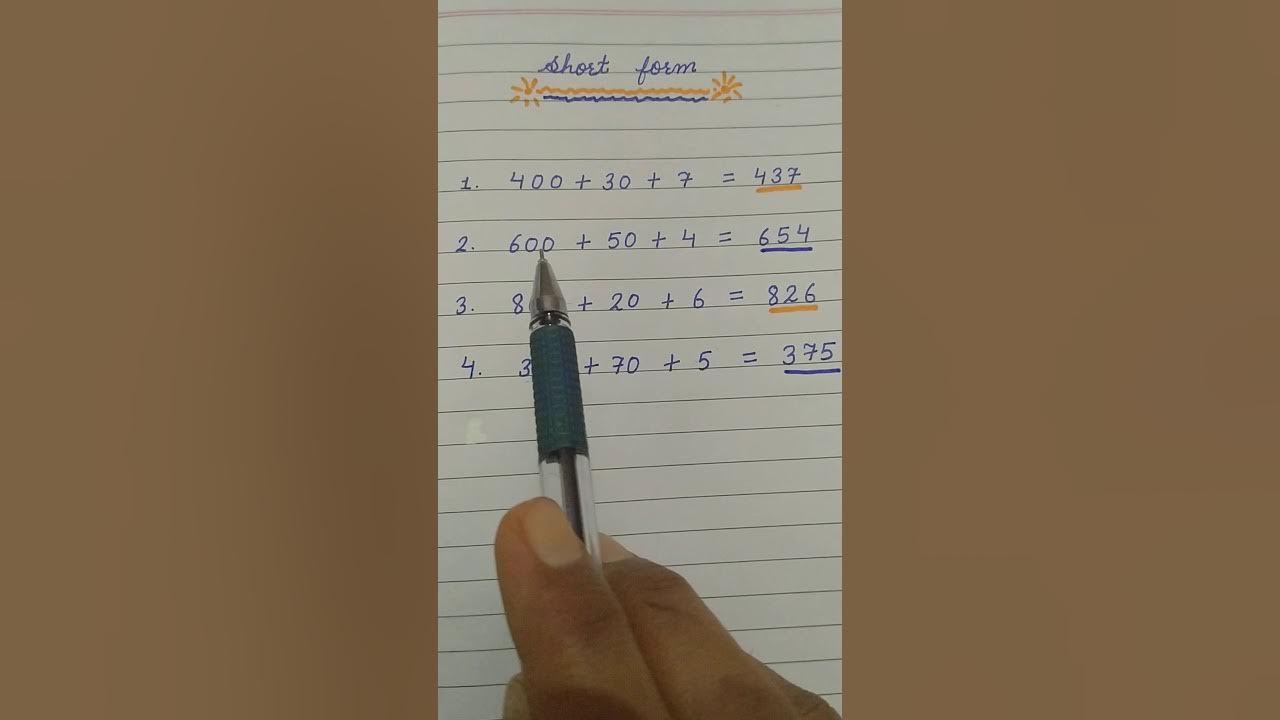 Short form
1. 400 + 30 + 7 = 437
2. 600 + 50 + 4 = 654
3. 8 + 20 + 6 = 826
4. 3 + 70 + 5 = 375